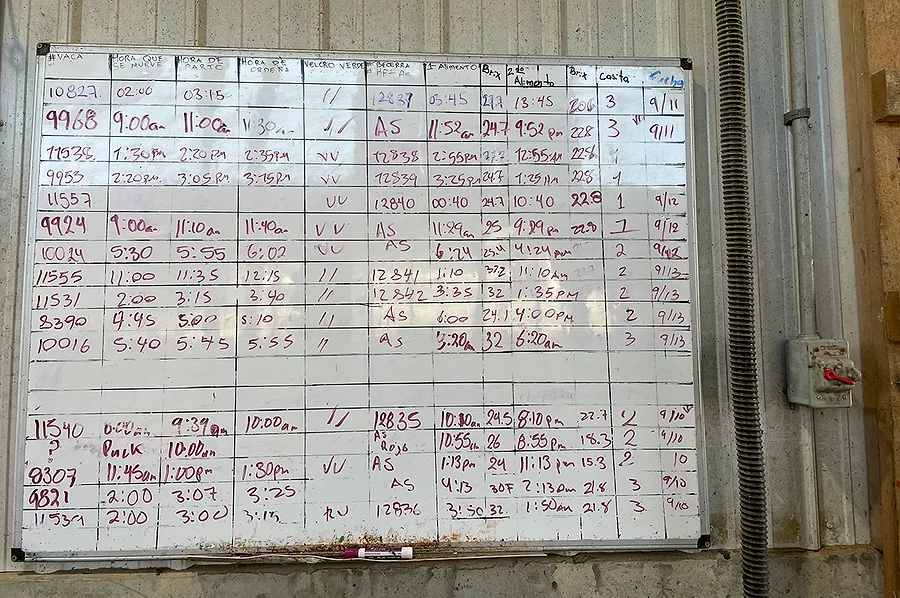 # VACA HORA QUE SE MUEVE HORA DE PARTO HORA DE ORDEÑA VELCRO VERDE # BECERRA 1 ALIMENTO Brix 2do Alimento Brix Casita Fecha
10827 02:00 03:15 // 12837 03:45 13:45 3 9/11
9968 9:00am 11:00am 11:30 // AS 11:52am 24.7 9:52pm 22.8 3 9/11
11538 1:30pm 2:20pm 2:35pm VV 12838 2:55pm 12:55am 22.8 1
9953 2:20pm 3:05pm 3:15pm VV 12839 3:25pm 24.7 1:25am 22.8 1
11557 VV 12840 00:40 24.7 10:40 22.8 1 9/12
9924 9:00am 11:10am 11:40am VV AS 11:29am 25 9:29pm 22.8 1 9/12
10024 5:30 5:55 6:02 VV AS 6:24 25.4 4:24pm 2 9/12
11555 11:00 11:35 12:15 // 12841 1:10 32.2 11:10Am 2 9/13
11531 2:00 3:15 3:40 // 12842 3:35 32 1:35PM 2 9/13
8390 4:45 5:00 5:10 // AS 6:00 24.1 4:00PM 2 9/13
10016 5:40 5:45 5:55 // AS 3:20a 32 6:20am 3 9/13
11540 9:39am 10:00am // 12835 10:10am 24.5 8:10pm 22.7 2 9/10
? Puck 10:00am AS Rojo 10:55am 26 8:55pm 18.3 2 9/10
9307 11:45am 1:00pm 1:30pm VV AS 1:13pm 24 11:13pm 15.3 2 10
9821 2:00 3:07 3:25 AS 4:13 30F 2:13am 21.8 3 9/10
11539 2:00 3:00 3:15 VV 12836 3:50 32 1:50am 21.8 3 9/10